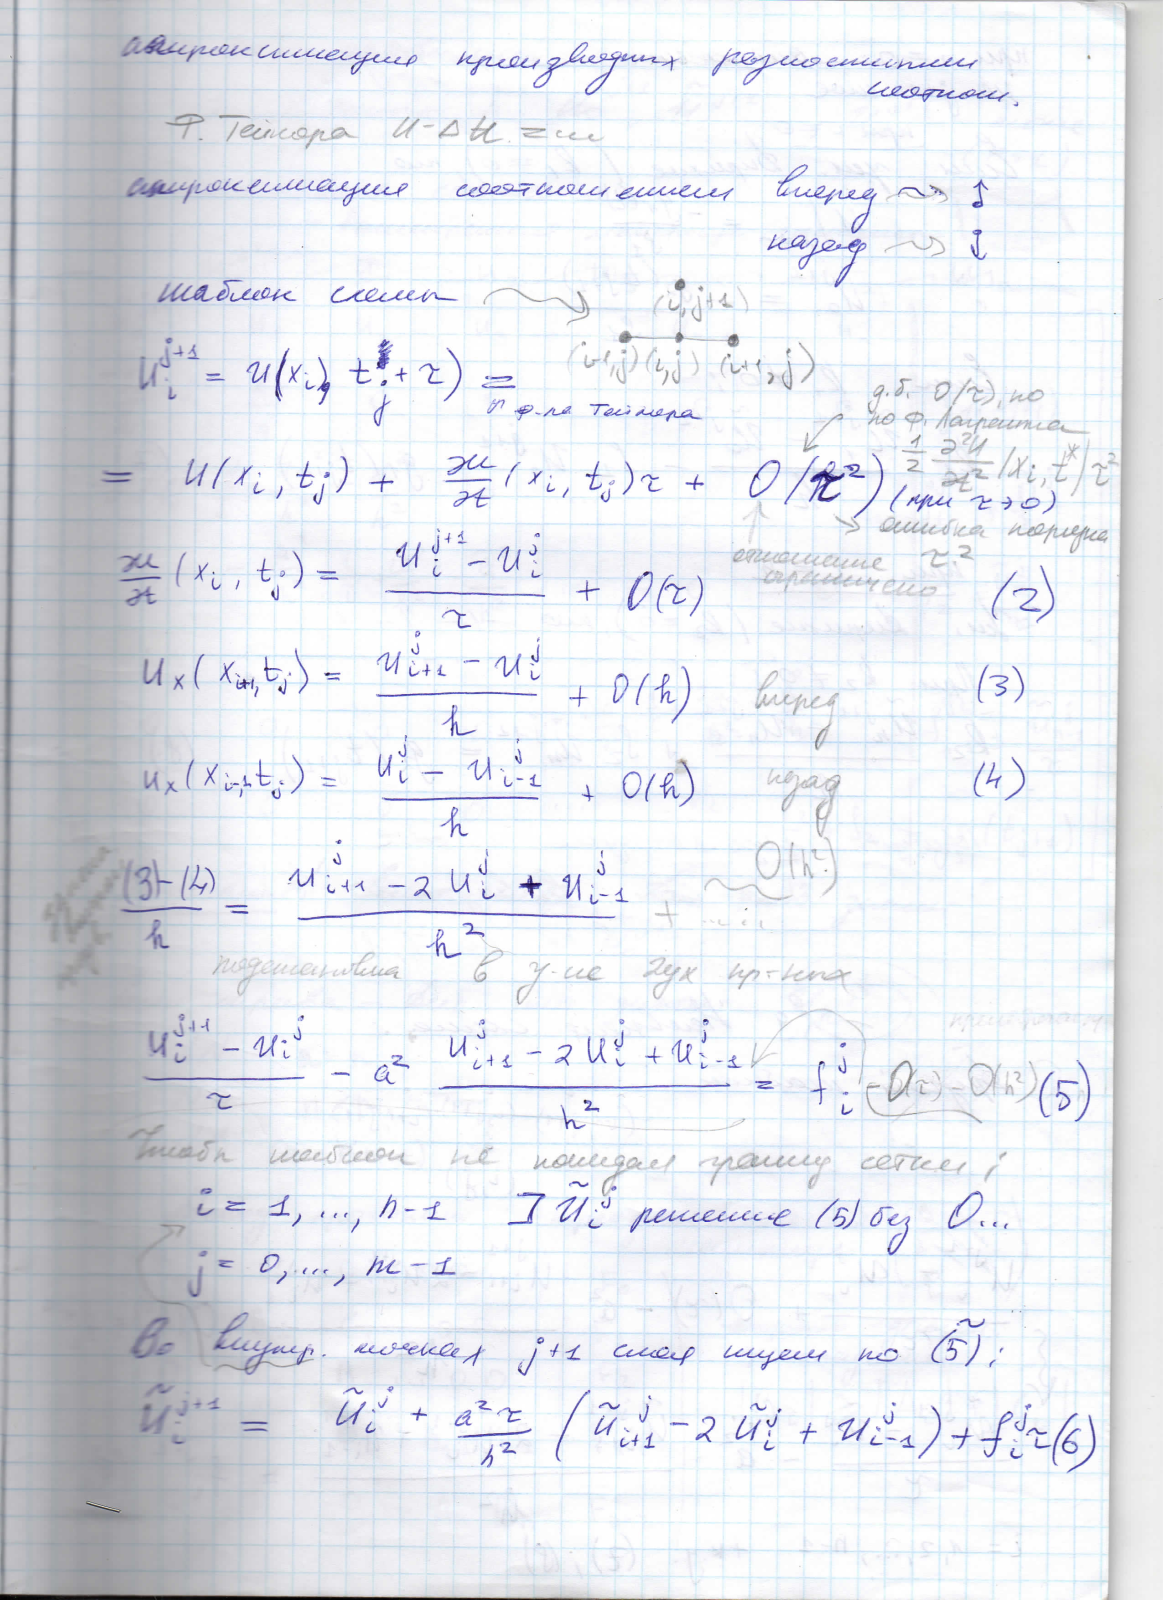 аппроксимация производных разностными
соотнош.
Ф. Тейлора u-Δu =
аппроксимация соотношением вперед
назад
шаблон схемы
(i,j+1)
(i-1,j) (i,j) (i+1,j)
u_i^{j+1} = u(x_i, t_j + τ) =
ф-ла Тейлора
д.б. O(τ), но
по Ф. Лагранжа
1/2 ∂²u/∂t² (x_i, t*) τ²
= u(x_i, t_j) + ∂u/∂t (x_i, t_j) τ + O(τ²) (при τ→0)
ошибка порядка τ²
отношение
ограничено
∂u/∂t (x_i, t_j) = (u_i^{j+1} - u_i^j)/τ + O(τ) (2)
u_x(x_{i+1}, t_j) = (u_{i+1}^j - u_i^j)/h + O(h) вперед (3)
u_x(x_{i-1}, t_j) = (u_i^j - u_{i-1}^j)/h + O(h) назад (4)
(3)-(4)/h = (u_{i+1}^j - 2u_i^j + u_{i-1}^j)/h² + ... O(h²)
подстановка в у-ие
(u_i^{j+1} - u_i^j)/τ - a² (u_{i+1}^j - 2u_i^j + u_{i-1}^j)/h² = f_i^j - O(τ) - O(h²) (5)
Чтобы шаблон не покидал границу сетки:
i = 1, ..., n-1 ] ũ_i^j решение (5) без O...
j = 0, ..., m-1
Во внутр. точках j+1 слоя ищем по (5̃):
ũ_i^{j+1} = ũ_i^j + a²τ/h² (ũ_{i+1}^j - 2ũ_i^j + u_{i-1}^j) + f_i^j τ (6)